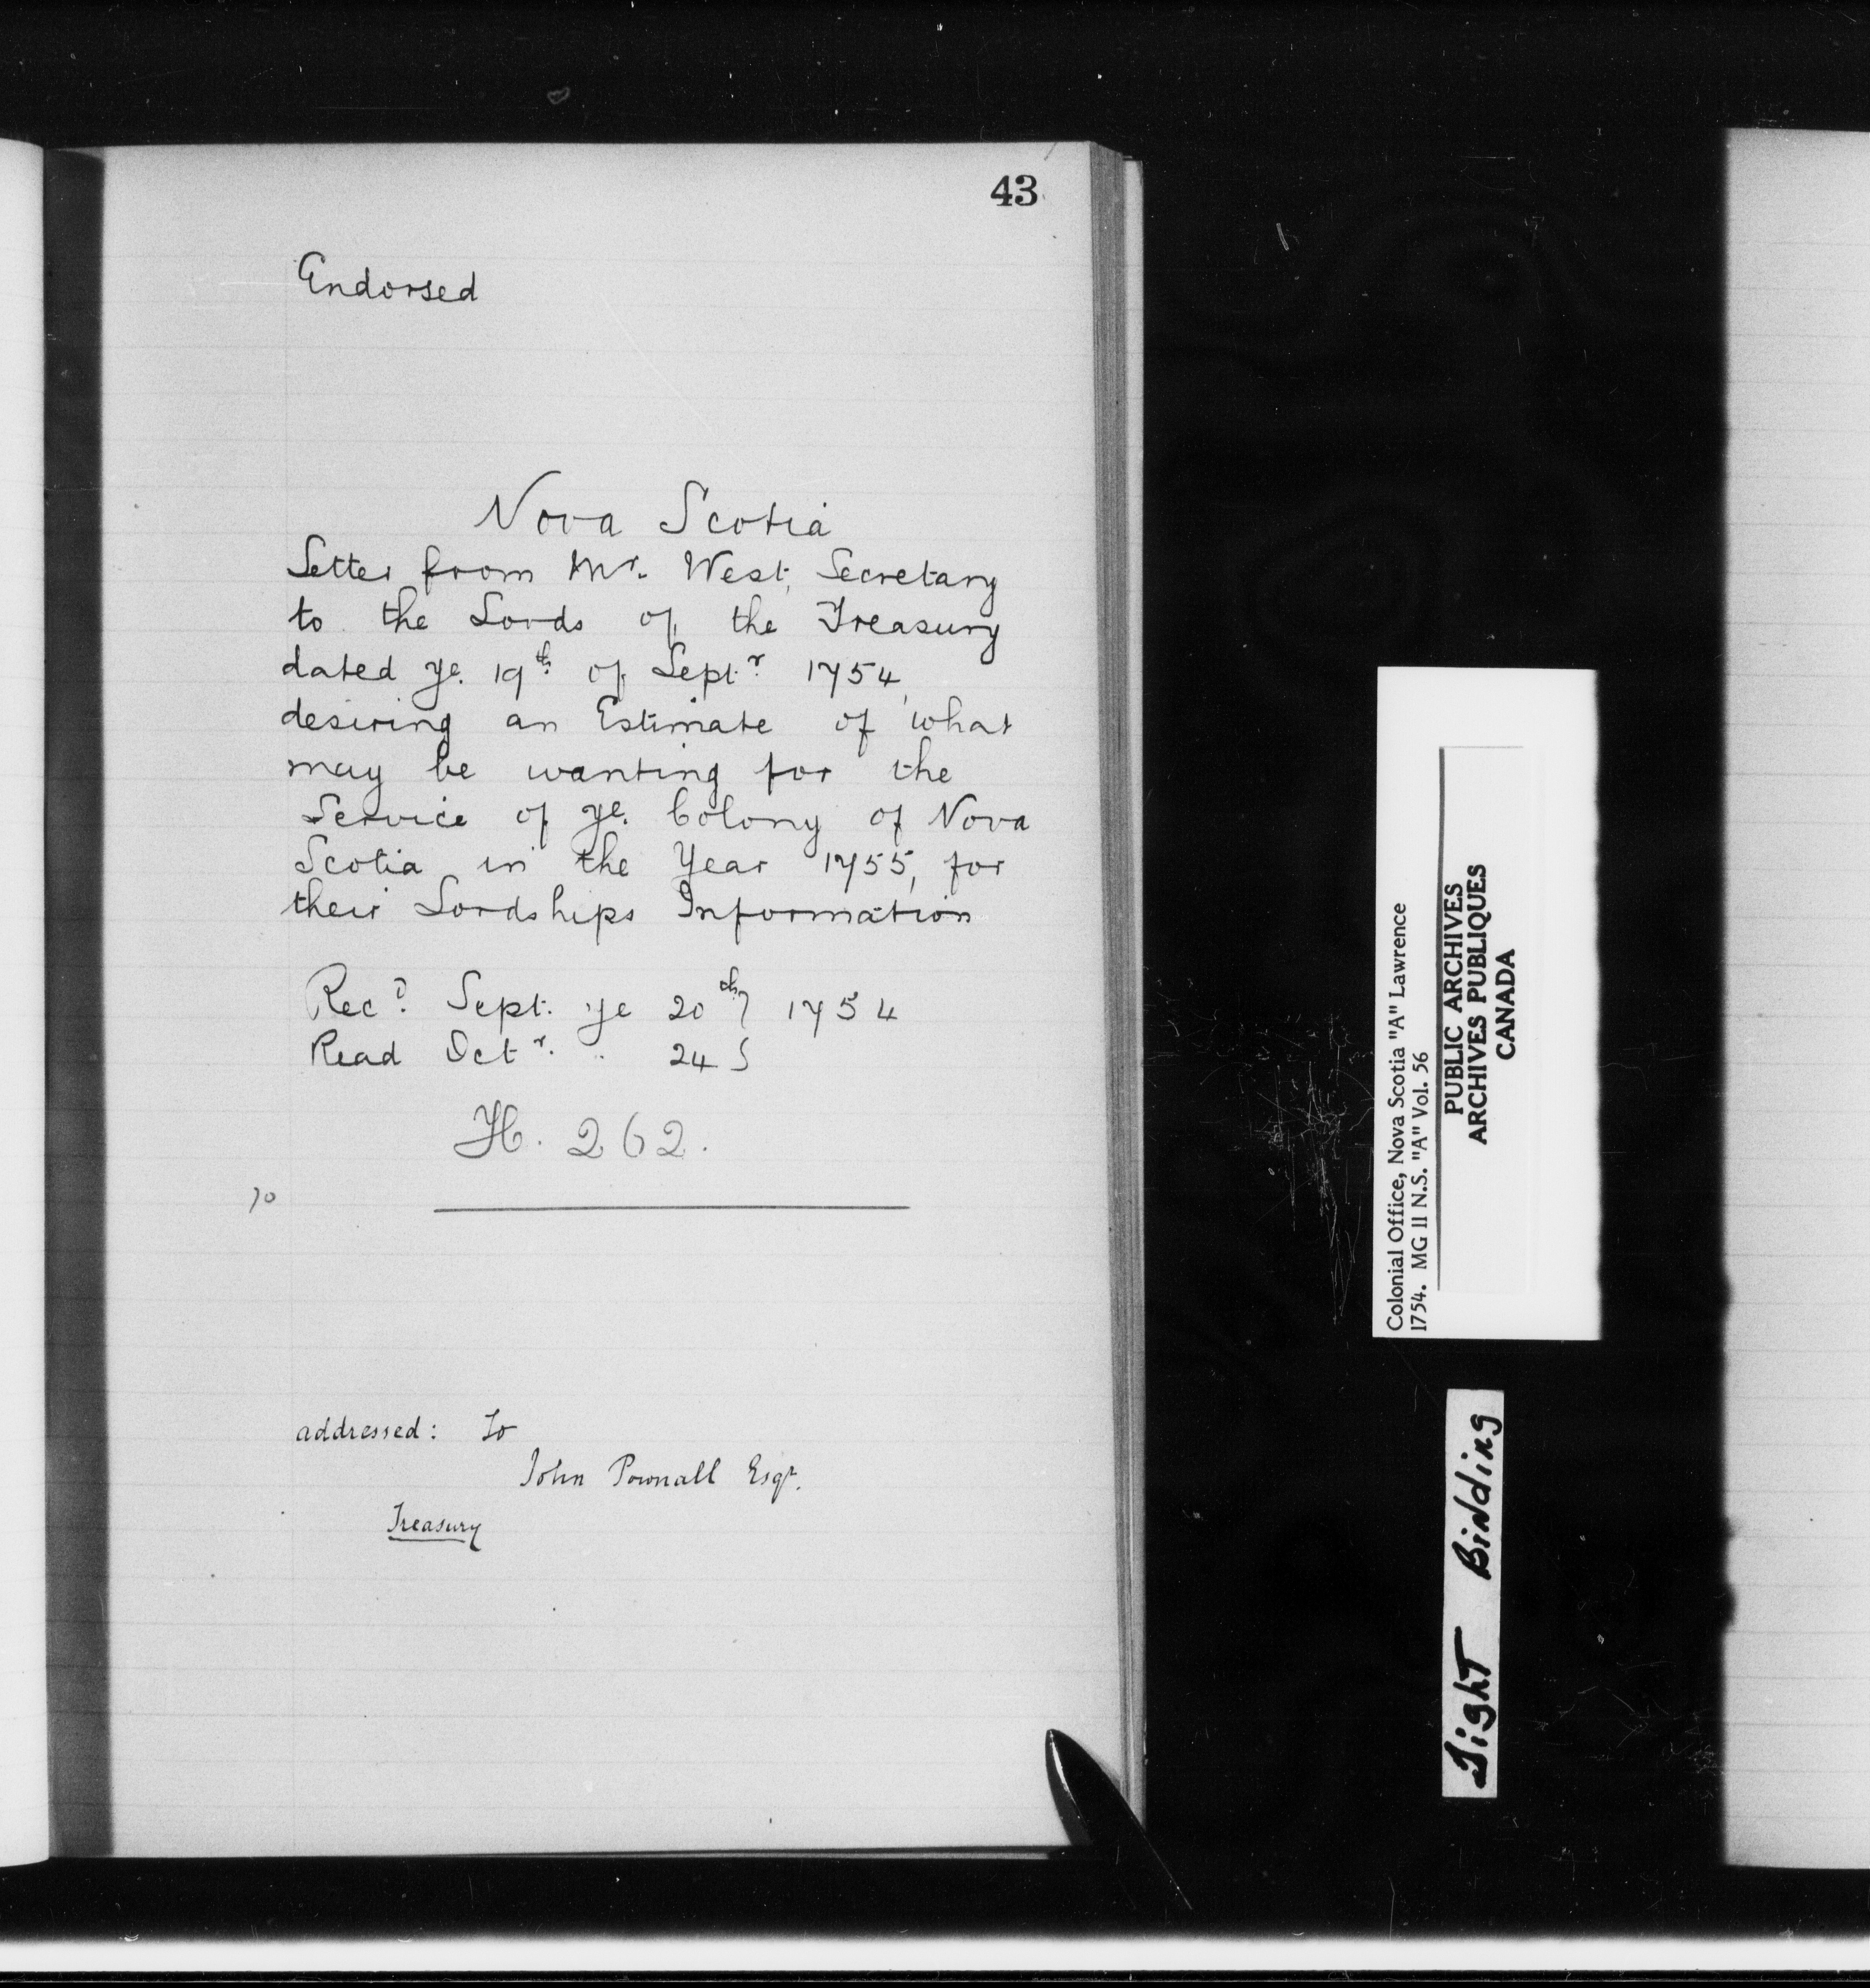 43
Endorsed
Nova Scotia
Letter from Mr. West, Secretary
to the Lords of the Treasury
dated ye. 19th of Septr. 1754,
desiring an Estimate of what
may be wanting for the
Service of ye. Colony of Nova
Scotia in the Year 1755, for
their Lordships Information
Recd. Sept. ye 20th } 1754
Read Octr. .. 24 }
H. 262.
70
addressed: To
John Pownall Esqr.
Treasury
Colonial Office, Nova Scotia "A" Lawrence
1754. MG 11 N.S. "A" Vol. 56
PUBLIC ARCHIVES
ARCHIVES PUBLIQUES
CANADA
Tight Binding